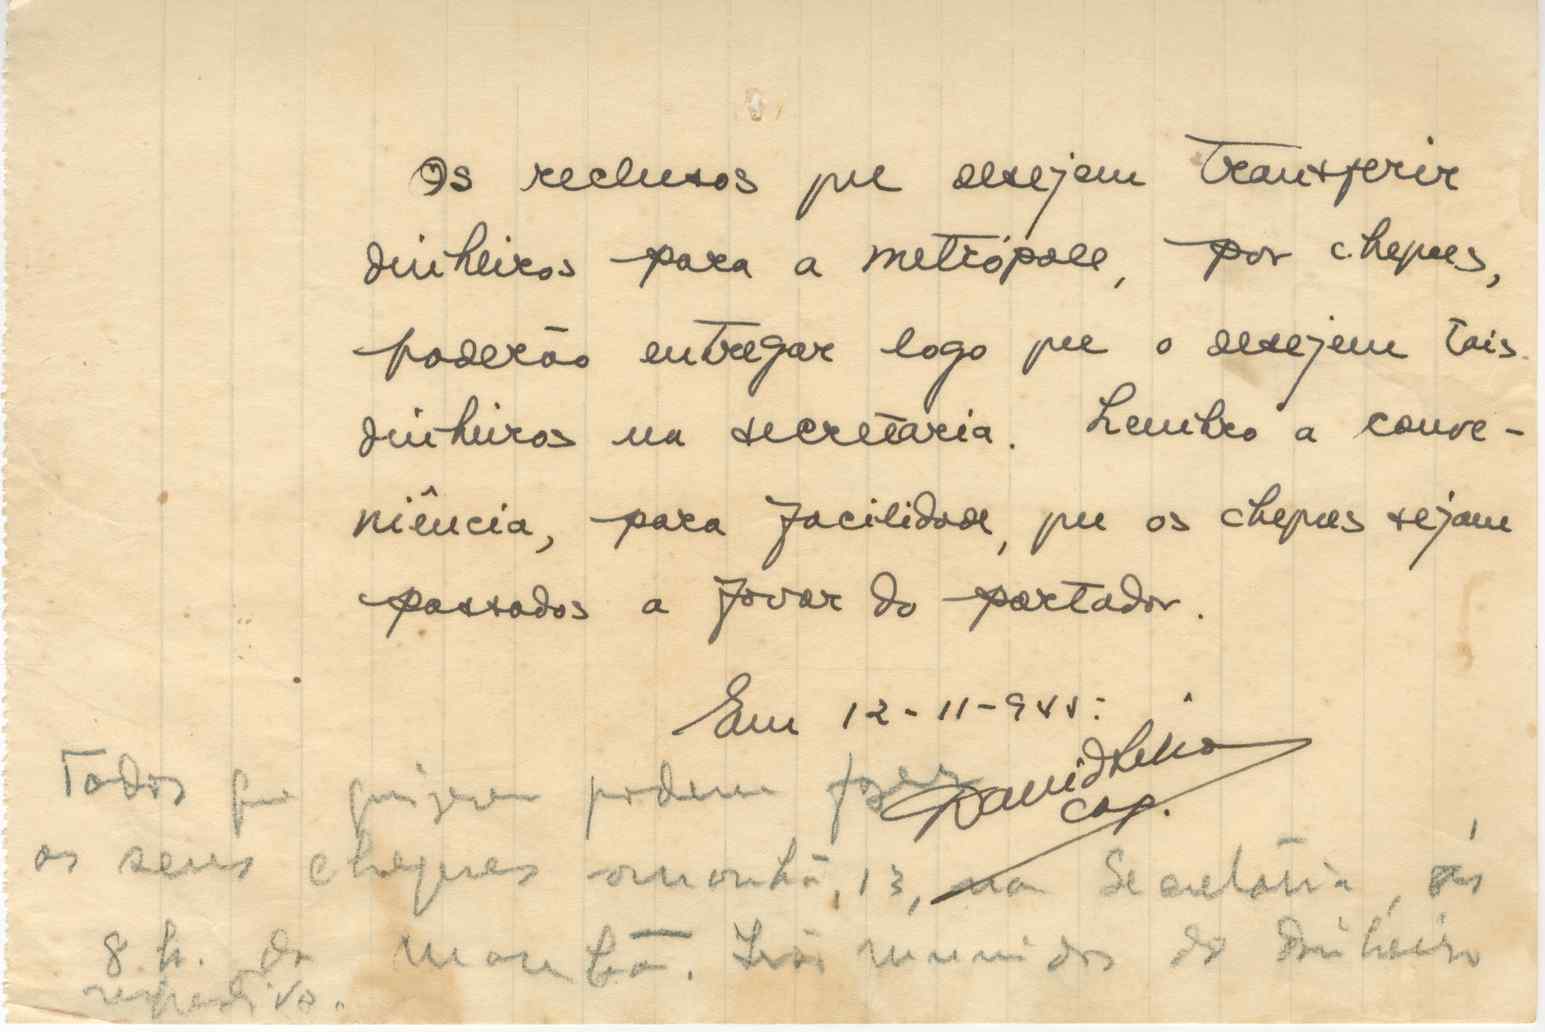 Os reclusos que desejem transferir
dinheiros para a metrópole, por cheques,
poderão entregar logo que o desejem tais
dinheiros na secretaria. Lembro a conve-
niência, para facilidade, que os cheques sejam
passados a favor do portador.
Em 12-11-944:
David
cap.
Todos que quizerem podem fazer
os seus cheques amanhã, 13, na Secretária, ás
8 h. da manhã. Irão munidos do dinheiro
respectivo.